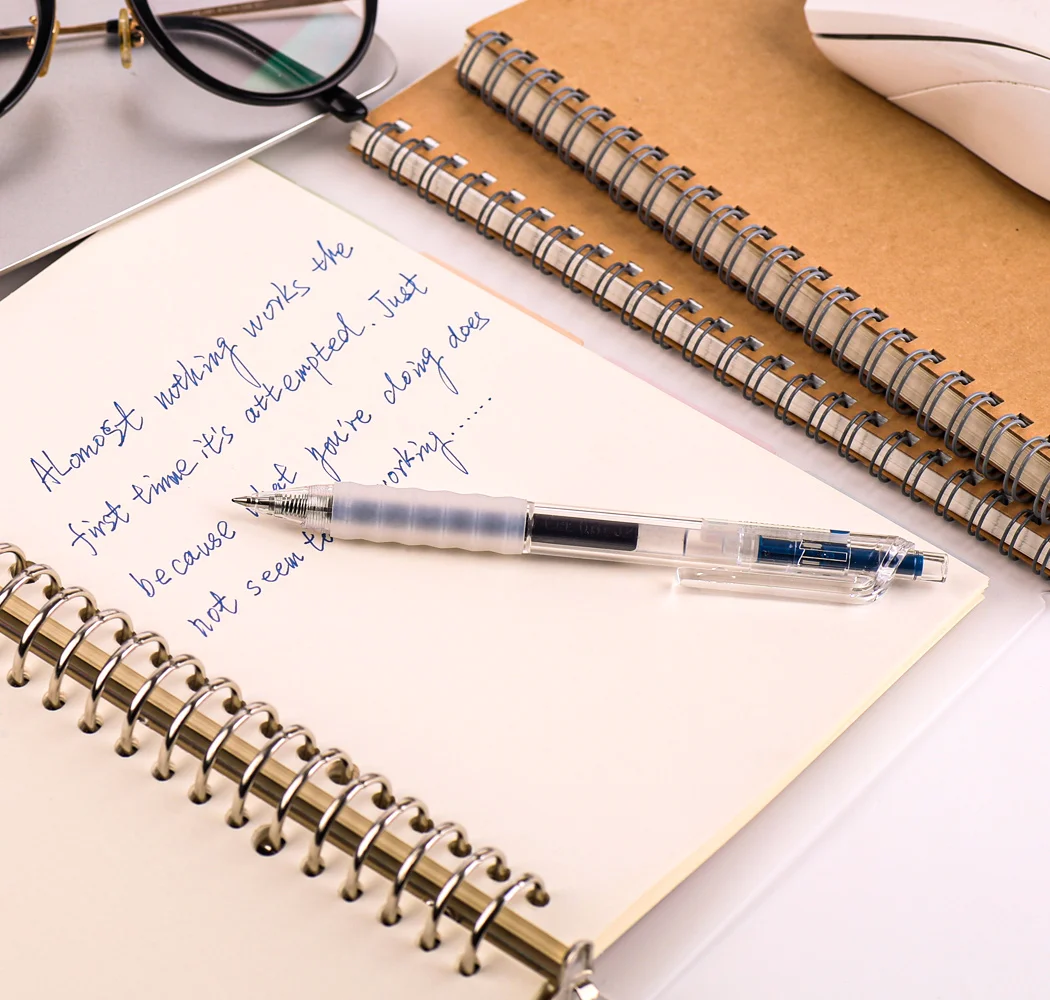 ALomost nothing works the
first time it's attempted. Just
because what you're doing does
not seem to working......